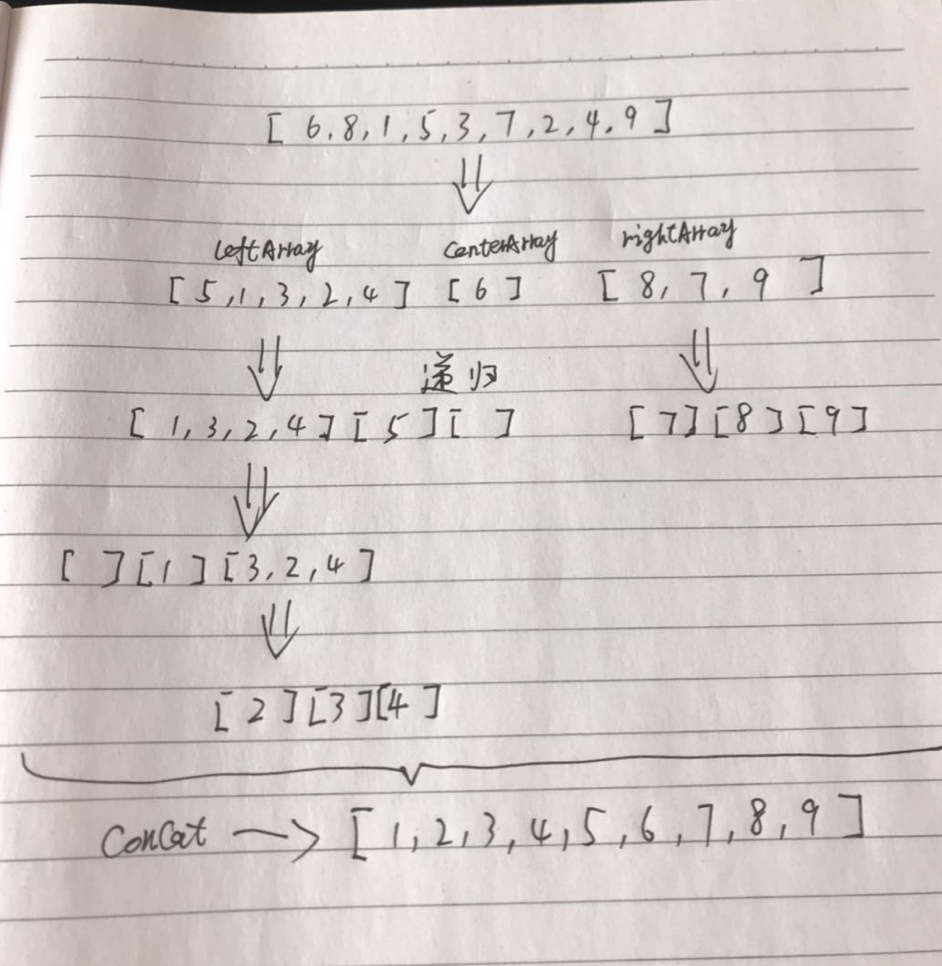 [ 6,8,1,5,3,7,2,4,9 ]
leftArray centerArray rightArray
[ 5,1,3,2,4 ] [ 6 ] [ 8,7,9 ]
递归
[ 1,3,2,4 ] [ 5 ] [ ] [ 7 ] [ 8 ] [ 9 ]
[ ] [ 1 ] [ 3,2,4 ]
[ 2 ] [ 3 ] [ 4 ]
ConCat → [ 1,2,3,4,5,6,7,8,9 ]